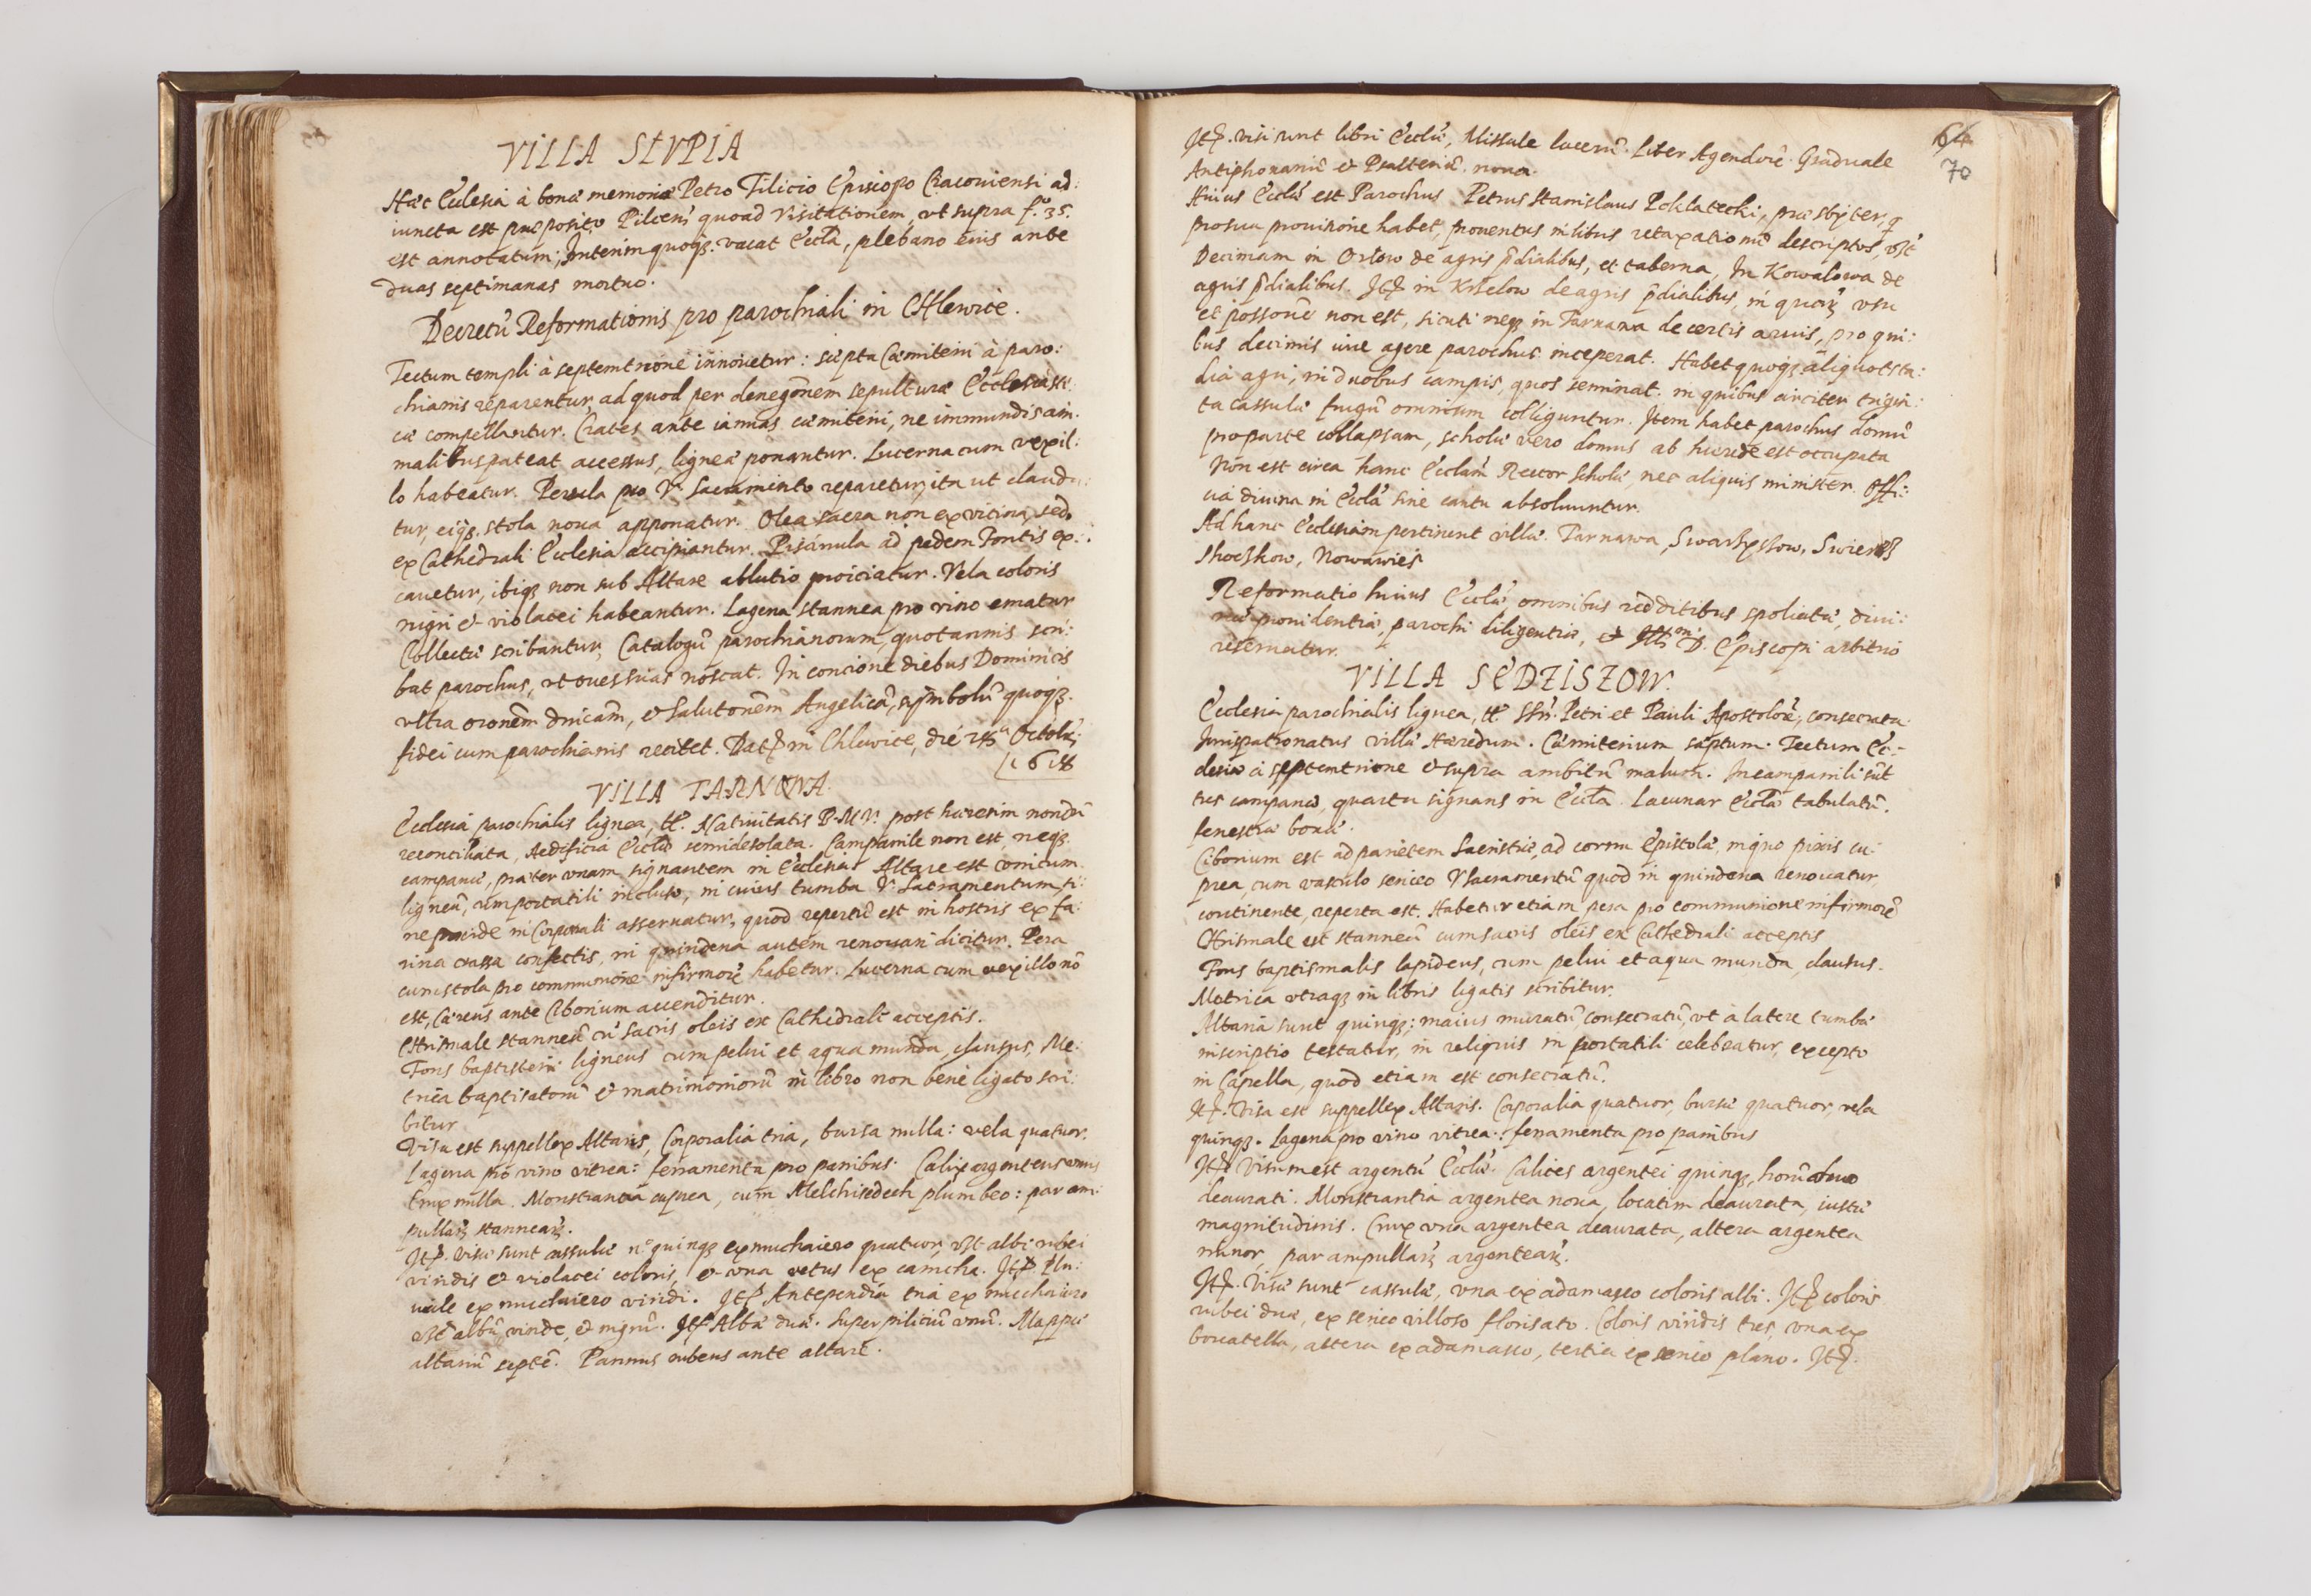 VILLA SLVPIA
Hæc Ecclesia à bonæ memoriæ Petro Tilicio Episcopo Cracouiensi ad:
iuncta est præposito Pilcen̄ quoad Visitationem, vt supra f.º 35.
est annotatum; Interim quoqȝ. vacat Eccľa, plebano eius ante
duas septimanas mortuo.
Decretū Reformationis pro parochiali in Chlewice.
Tectum templi à septemtrione innouetur: sæpta Cæmiterii à paro:
chianis reparentur, ad quod per denegōnem sepulturæ Ecclesiasti:
cæ compellantur. Crates ante ianuas cæmiterii, ne immundis ani:
malibus pateat accessus, ligneæ ponantur. Lucerna cum vexil:
lo habeatur. Perula pro V. Sacramento reparetur, ita ut claudu:
tur, eiqȝ. stola noua apponatur. Olea sacra non ex vicina, sed
ex Cathedrali Ecclesia accipiantur. Piscinula ad pedem Fontis ex:
cauetur, ibiqȝ non sub Altare ablutio proiiciatur. Vela coloris
nigri et violacei habeantur. Lagena stannea pro vino ematur
Collectæ scribantur, Catalogū parochianorum, quotannis scri:
bat parochus, vt oues suas noscat. In concione diebus Dominicis
vltra oronēm dnicām, et Salutonēm Angelicā, symbolū quoqȝ.
fidei cum parochianis recitet. Dat. in Chlewice, die 28ª Octobr:
1618
VILLA TARNOWA.
Ecclesia parochialis lignea, tt. Natiuitatis B.M.V. post hæresim nondū
reconciliata, Aedificia Eccľæ semidesolata. Campanile non est, neqȝ.
campanæ, præter vnam signantem in Ecclesia. Altare est vnicum
ligneū, cum portatili incluso, in cuius tumba V. Sacramentum si:
ne pixide in Corporali asseruatur, quod repertū est in hostiis ex fa:
rina crassa confectis, in quindena autem renouari dicitur. Pera
cum stola pro communione infirmorū habetur. Lucerna cum vexillo nō
est, Cæreus ante Ciborium accenditur.
Chrismale stanneū cū sacris oleis ex Cathedrali acceptis.
Fons baptisterii ligneus cum pelui et aqua munda, clausus, Me:
trica baptisatorū et matrimoniorū in libro non bene ligato scri:
bitur
Visa est suppellex Altaris, Corporalia tria, bursa nulla: vela quatuor.
Lagena pro vino vitrea: ferramenta pro panibus. Calix argenteus vnus
Crux nulla. Monstrantia cuprea, cum Melchisedech plumbeo: par am:
pullarȝ stannearȝ.
Itē. Visæ sunt cassulæ nº quinqȝ ex muchaiero quatuor, vȝt albi rubei
viridis et violacei coloris, et vna vetus ex camcha. Itē Plu:
uiale ex mucchaiero viridi. Itē Antependia tria ex mucchaiero
vȝt albū, viride, et nigrū. Itē Albæ duæ. Superpiliciū vnū. Mappæ
altariū septē. Pannus rubeus ante altare.
64
70
Itē. visi sunt libri Eccľæ, Missale lacerū. Liber Agendorū. Graduale
Antiphonariū et Psalteriū noua.
Huius Eccľæ est Parochus Petrus Stanislaus Poklatecki, præsbyter, q
pro sua prouisione habet, prouentus in libris retaxationū descriptos, vȝt
Decimam in Orlow de agris p̄dialibus, et taberna, In Kowalowa de
agris p̄dialibus. Itē in Krzelow de agris p̄dialibus, in quorȝ vsu
et possonē non est, sicuti neqȝ in Tarnawa de certis aruis, pro qui:
bus decimis iure agere parochus inceperat. Habet quoqȝ aliquot sta:
dia agri, in duobus campis, quos seminat, in quibus circiter trigin:
ta cassulæ frugū omnium colliguntur. Item habet parochus domū
pro parte collapsam, scholæ vero domus ab hærede est occupata
Non est circa hanc Eccľam Rector Scholæ nec aliquis minister. Offi:
cia diuina in Eccľa sine cantu absoluuntur.
Ad hanc Ecclesiam pertinent villæ. Tarnawa, Swarzyszow,
Nowawies
Reformatio huius Eccľæ, omnibus redditibus spoliatæ, diui:
næ prouidentiæ, parochi diligentiæ, et Illmi D. Episcopi arbitrio
reseruatur.
VILLA SĘDZISZOW.
Ecclesia parochialis lignea, tt. SSrū. Petri et Pauli Apostolorū, consecrata.
Iurispatronatus villæ Hæredum. Cæmiterium sæptum. Tectum Ec:
clesiæ a septemtrione et supra ambitū malum. In campanili sūt
tres campanæ, quarta signans in Eccľa. Lacunar Eccľæ tabulatū.
fenestræ bonæ.
Ciborium est ad parietem Sacristiæ, ad cornu Epistolæ, in quo pixis cu:
prea, cum vasculo sericeo V. Sacramentū quod in quindena renouatur
continente, reperta est. Habetur etiam pera pro communione infirmorū
Chrismale est stanneū cum sacris oleis ex Cathedrali acceptis
Fons baptismalis lapideus, cum pelui et aqua munda, clausus.
Metrica vtraqȝ in libris ligatis scribitur.
Altaria sunt quinqȝ: maius muratū, consecratū, vt a latere tumbæ
inscriptio testatur, in reliquis in portatili celebratur, excepto
in Capella, quod etiam est consecratū.
Itē. Visa est suppellex Altaris. Corporalia quatuor, bursæ quatuor, vela
quinqȝ. Lagena pro vino vitrea: ferramenta pro panibus
Itē Visum est argentū Eccľæ. Calices argentei quinqȝ, horū duo
deaurati. Monstrantia argentea noua, locatim deaurata, iustæ
magnitudinis. Crux vna argentea deaurata, altera argentea
minor, par ampullarȝ argentearȝ.
Itē. Visæ sunt cassulæ, vna ex adamasco coloris albi. Itē coloris
rubei duæ, ex serico villoso florisato. Coloris viridis tres, vna ex
boucatella, altera ex adamasco, tertia ex serico plano. Itē.